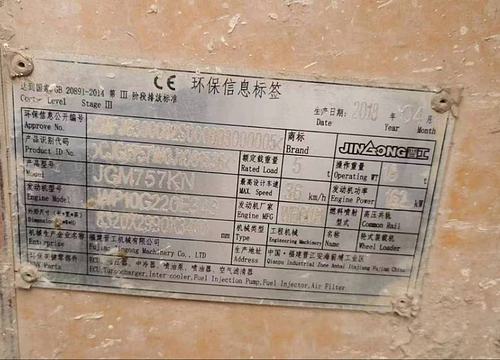 CE 环保信息标签
达到国家 GB 20891-2014 第 III 阶段排放标准
Level Stage III
生产日期: 2018 04
Date Year Month
环保信息公开编号
Approve No.
商标
Brand
JINGONG 晋工
产品识别代码
Product ID No.
额定载重量
Rated Load
5 t
操作重量
Operating WT
t
产品型号
Model
JGM757KN
最高设计车速
Max Speed
36 km/h
发动机功率
Engine Power
162 kW
发动机型号
Engine Model
发动机厂家
Engine MFG
燃料喷射型式
高压共轨
Common Rail
外形尺寸
Dimension
mm
机械类型
Type
工程机械
Engineering Machinery
名称
Name
轮式装载机
Wheel Loader
机械生产企业名称
Enterprise
福建晋工机械有限公司
Fujian Jingong Machinery Co., Ltd
生产地址
Address
中国·福建晋江安海前埔工业区
Qianpu Industrial Zone Anhai Jinjiang Fujian China
环保关键零部件
Parts
ECU、增压器、中冷器、喷油泵、喷油器、空气滤清器
ECU,Turbocharger,Inter cooler,Fuel Injection Pump,Fuel Injector,Air Filter